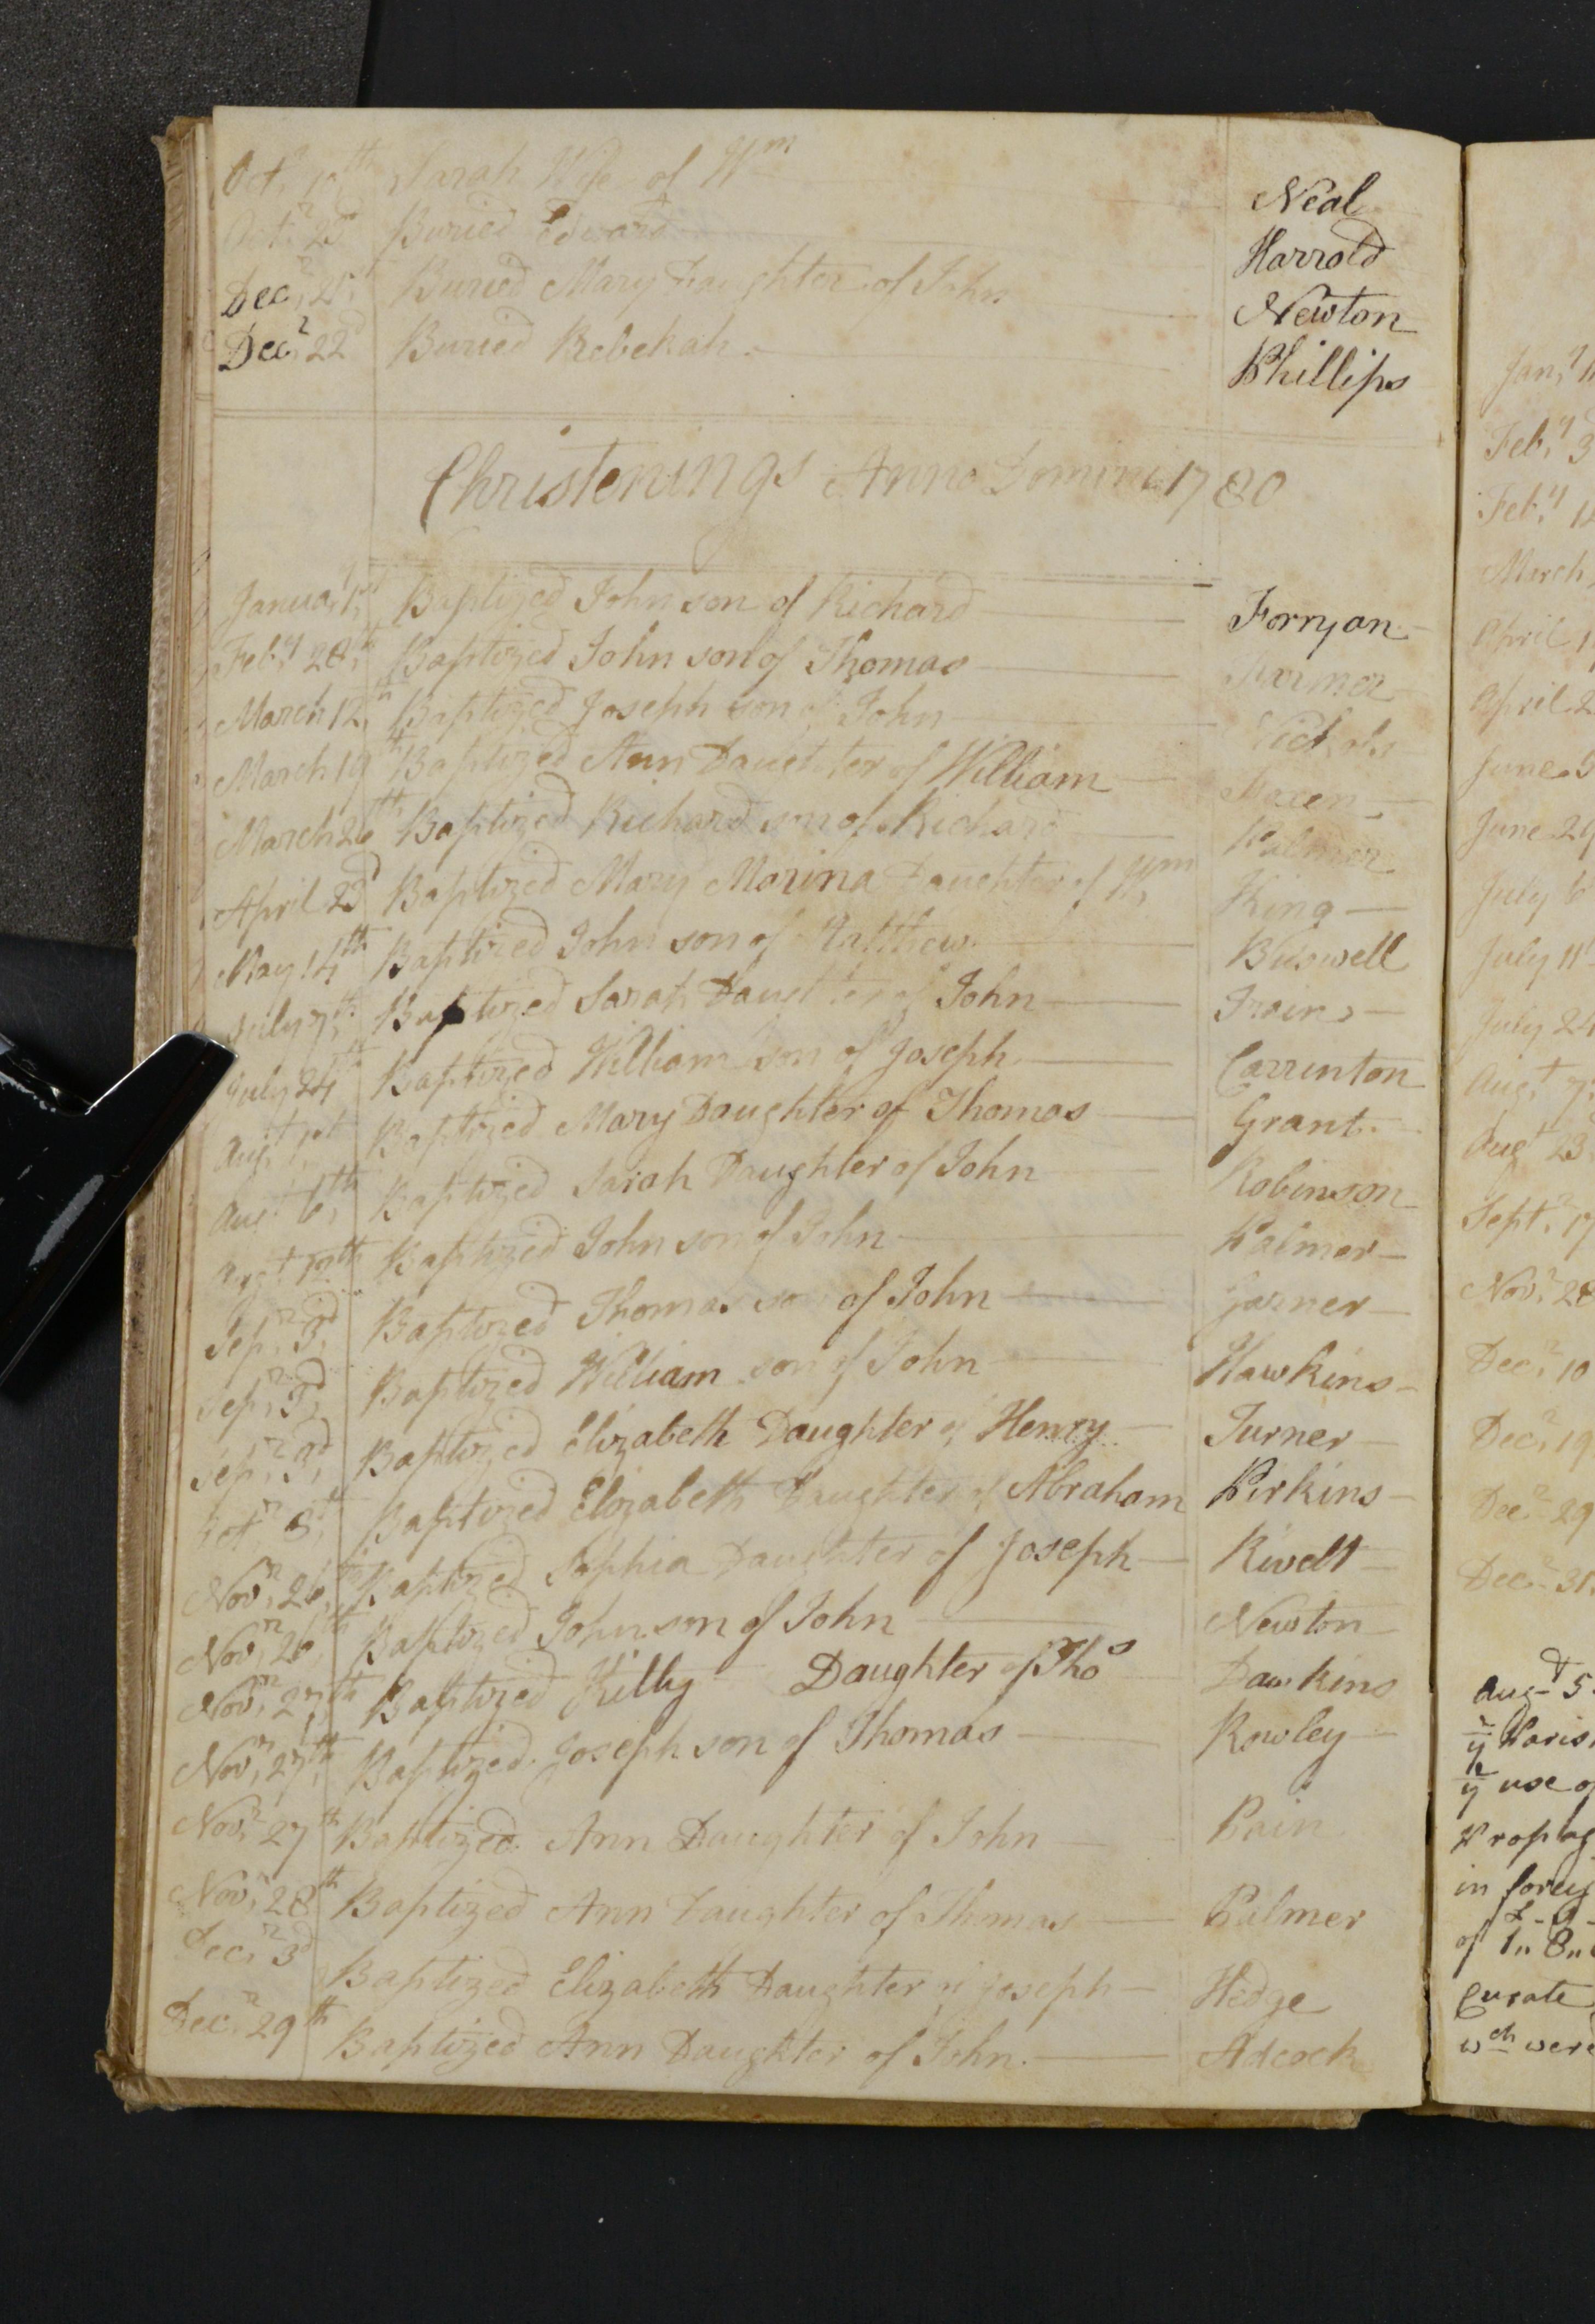 Oct.r Sarah Wife of Wm Neal
Oct.r 23 Buried Edward Harrold
Dec.r 21 Buried Mary Daughter of John Newton
Dec.r 22d Buried Rebekah Phillips
Christenings Anno Domini 1780
Janua.y 1st Baptized John son of Richard Forryan
Feb.y 28th Baptized John son of Thomas
March 12th Baptized Joseph son of John Nichols
March 19th Baptized Ann Daughter of William
March 26th Baptized Richard son of Richard Palmer
April 23d Baptized Mary Marina Daughter of Wm King
May 14th Baptized John son of Matthew Buswell
July 7th Baptized Sarah Daughter of John
July 24th Baptized William son of Joseph Carrinton
Augt 1st Baptized Mary Daughter of Thomas Grant
Augt 6th Baptized Sarah Daughter of John Robinson
Augt Baptized John son of John Palmer
Sep.r 3d Baptized Thomas son of John Garner
Sep.r 3d Baptized William son of John Hawkins
Sep.r 3d Baptized Elizabeth Daughter of Henry Turner
Oct.r 8th Baptized Elizabeth Daughter of Abraham Pirkins
Nov.r 26th Baptized Sophia Daughter of Joseph Rivett
Nov.r 26th Baptized John son of John Newton
Nov.r 27th Baptized Daughter of Thos Dawkins
Nov.r 27th Baptized Joseph son of Thomas Rowley
Nov.r 27th Baptized Ann Daughter of John Pain
Nov.r 28th Baptized Ann Daughter of Thomas Palmer
Dec.r 3d Baptized Elizabeth Daughter of Joseph Hedge
Dec.r 29th Baptized Ann Daughter of John Adcock
Jan.y
Feb.y 3
Feb.y
March
April
April 2
June
June 29
July 6
July 11
July 2
Augt 7
Augt 23
Sept.r 17
Nov.r 2
Dec.r 10
Dec.r 19
Dec.r 29
Dec.r 31
Augt 5
ye Paris
ye use of
Propag
in foreig
of
Curate
wch were